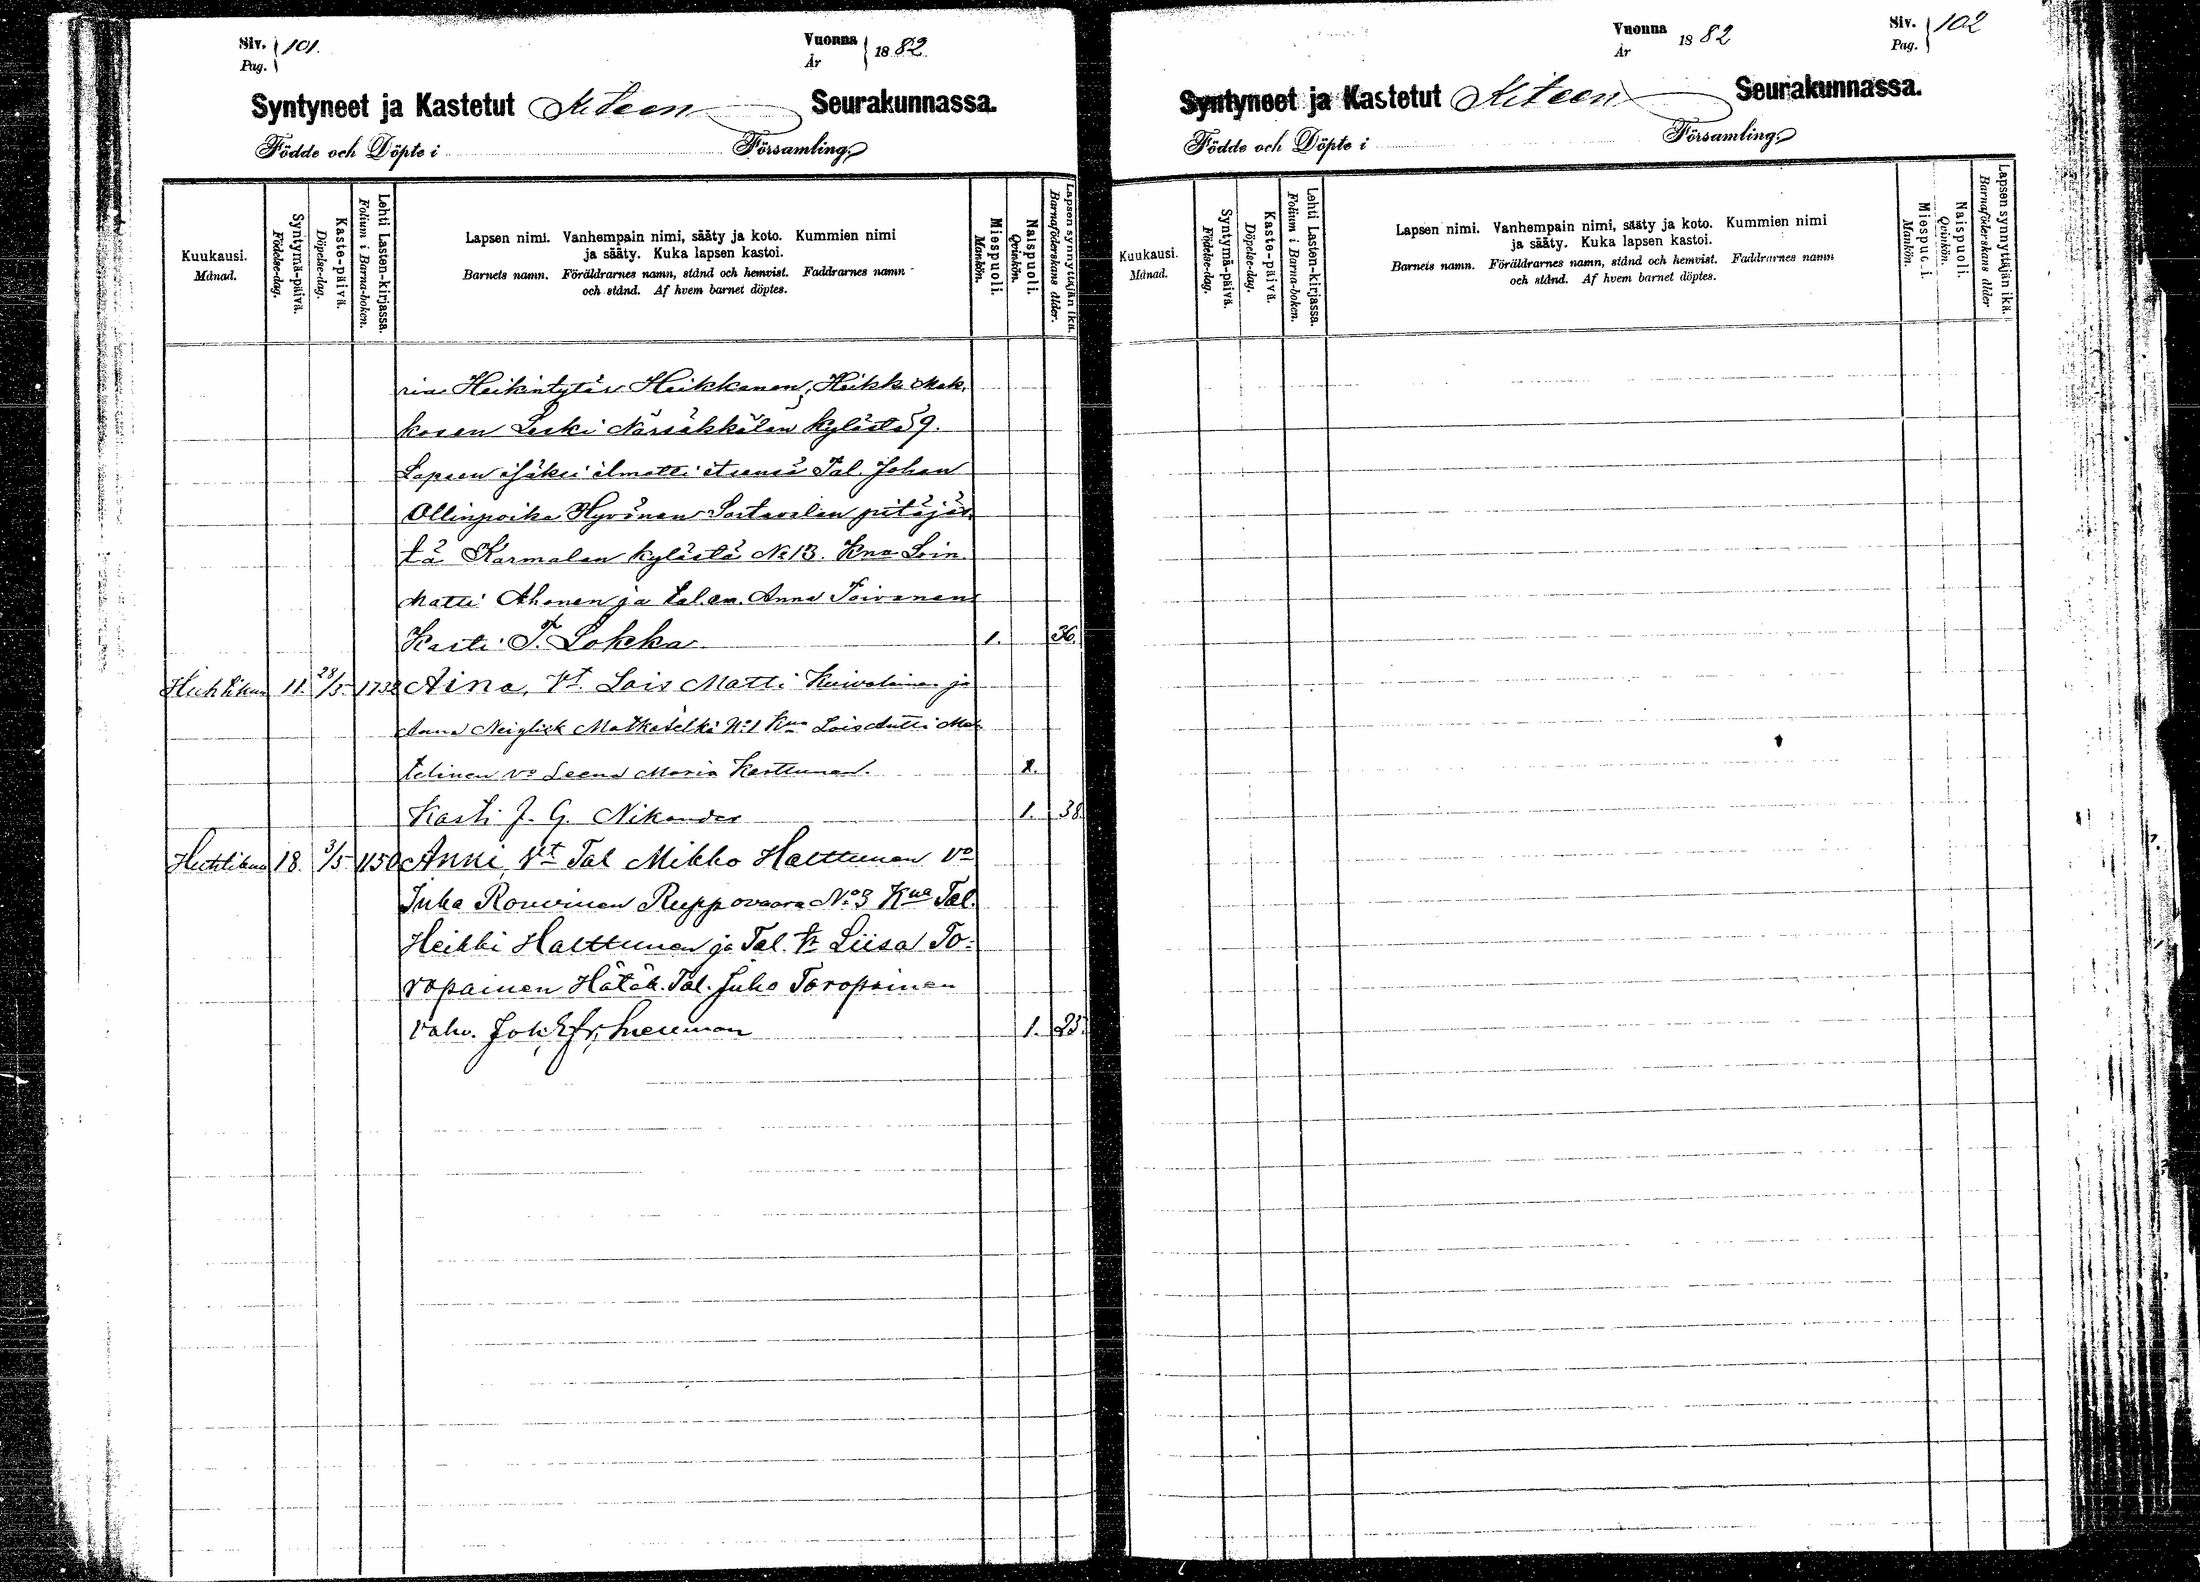 Siv. 101.
Pag.
Vuonna 1882.
År
Syntyneet ja Kastetut Kiteen Seurakunnassa.
Födde och Döpte i Församling.
Kuukausi.
Månad.
Syntymä-päivä.
Födelse-dag.
Kaste-päivä.
Döpelse-dag.
Lehti Lasten-kirjassa.
Folium i Barna-boken.
Lapsen nimi. Vanhempain nimi, sääty ja koto. Kummien nimi
ja sääty. Kuka lapsen kastoi.
Barnets namn. Föräldrarnes namn, stånd och hemvist. Faddrarnes namn
och stånd. Af hvem barnet döptes.
Miespuoli.
Mankön.
Naispuoli.
Qvinkön.
Lapsen synnyttäjän ikä.
Barnaföderskans ålder.
ria Heikintytär Heikkanen, Heikki Mak.
kosen Leski Närsäkkälän kylästä 9.
Lapsen isäksi ilmotti itsensä Tal. Johan
Ollinpoika Hyvönen Sortavalan pitäjäs
tä Karmalan kylästä No 13. Kna Loin.
Matti Ahonen ja tal. em. Anna Toivanen
Kasti T. Lokka 1. 36.
Huhtikuu 11. 28/5 1732 Aina, Vt. Lois Matti Kuivalainen ja
Anna Neiglick Matkaselkä No 1 Kna Lois Antti Mat
telinen vo Leena Maria Karttunen. 1.
Kasti J. G. Nikander 1. 38.
Huhtikuu 18. 3/5 1150 Anni, Vt Tal Mikko Halttunen vo
Juha Rouvinen Ruppovaara No 3 Kna Tal.
Heikki Halttunen ja Tal. Liisa To-
ropainen Hätäk. Tal. Juho Toropainen
vahv. Joh. Efr. 1. 23.
Vuonna 1882
År
Siv. 102
Pag.
Syntyneet ja Kastetut Kiteen Seurakunnassa.
Födde och Döpte i Församling.
Kuukausi.
Månad.
Syntymä-päivä.
Födelse-dag.
Kaste-päivä.
Döpelse-dag.
Lehti Lasten-kirjassa.
Folium i Barna-boken.
Lapsen nimi. Vanhempain nimi, sääty ja koto. Kummien nimi
ja sääty. Kuka lapsen kastoi.
Barnets namn. Föräldrarnes namn, stånd och hemvist. Faddrarnes namn
och stånd. Af hvem barnet döptes.
Miespuoli.
Mankön.
Naispuoli.
Qvinkön.
Lapsen synnyttäjän ikä.
Barnaföderskans ålder